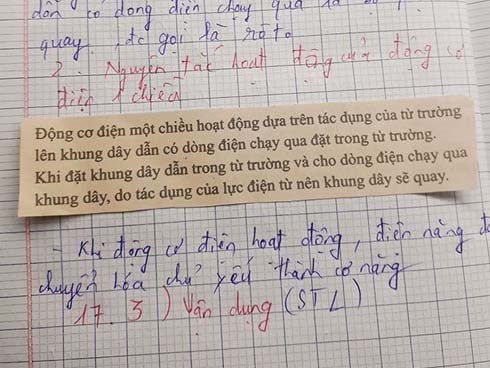 dẫn có dòng điện chạy qua
quay. đc gọi là rôto
2. Nguyên tắc hoạt động của động cơ
điện 1 chiều
Động cơ điện một chiều hoạt động dựa trên tác dụng của từ trường
lên khung dây dẫn có dòng điện chạy qua đặt trong từ trường.
Khi đặt khung dây dẫn trong từ trường và cho dòng điện chạy qua
khung dây, do tác dụng của lực điện từ nên khung dây sẽ quay.
- Khi động cơ điện hoạt động, điện năng đc
chuyển hóa chủ yếu thành cơ năng
17. 3) Vận dụng (STL)